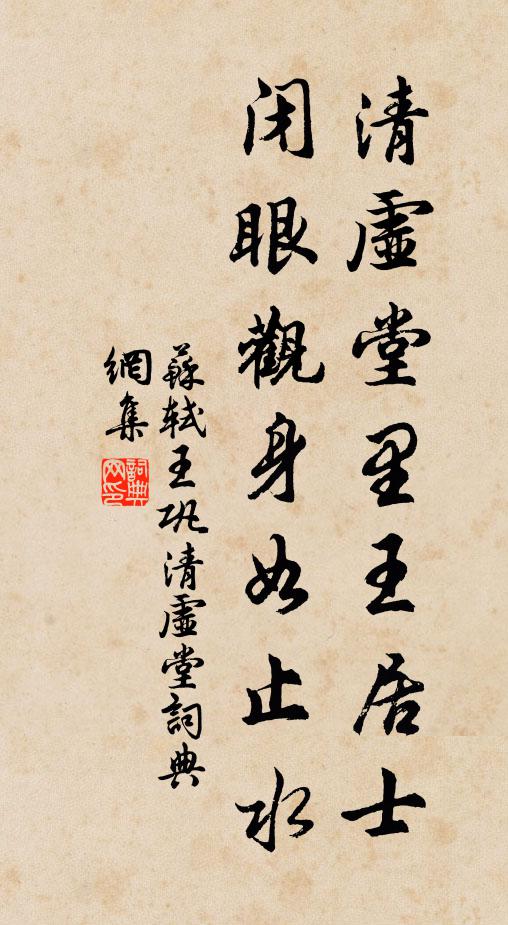 清虛堂里王居士
閉眼觀身如止水
蘇軾王鞏清虛堂詞典
網集
詞典
网印